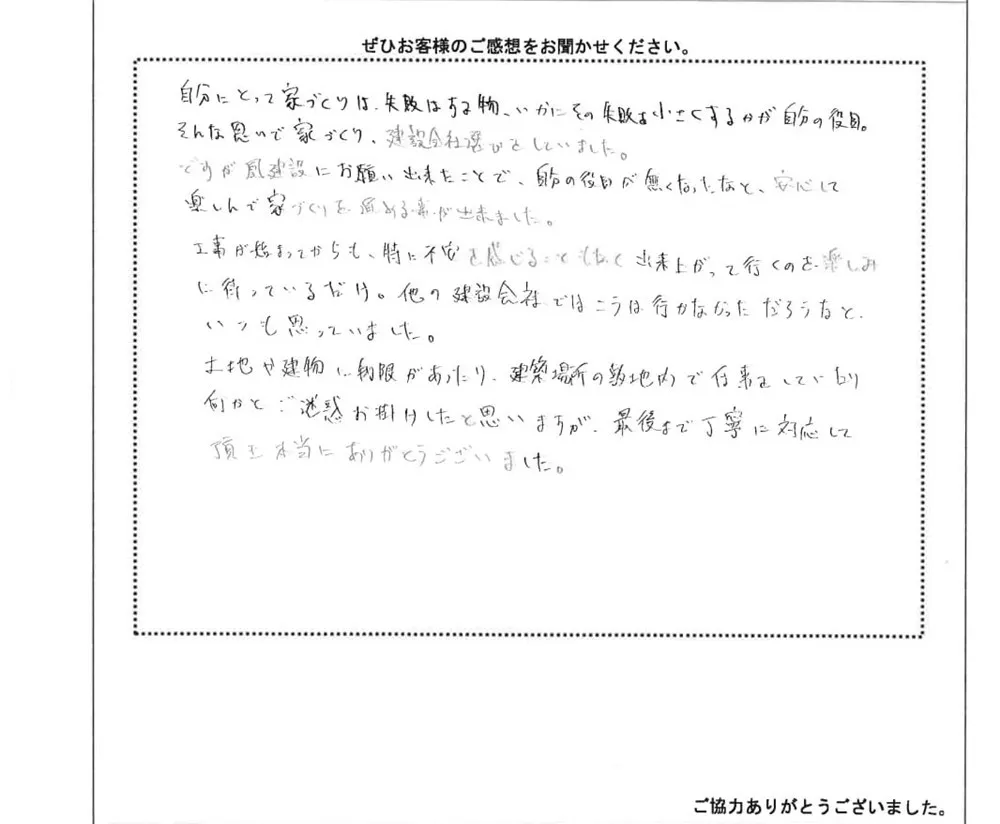 ぜひお客様のご感想をお聞かせください。
自分にとって家づくりは、失敗はする物、いかにその失敗を小さくするかが自分の役目。
そんな思いで家づくり、建設会社選びをしていました。
ですが風建設にお願い出来たことで、自分の役目が無くなったなと、安心して
楽しんで家づくりを進める事が出来ました。
工事が始まってからも、特に不安を感じることもなく出来上がって行くのを楽しみ
に待っているだけ。他の建設会社ではこうは行かなかっただろうなと、
いつも思っていました。
土地や建物に制限があったり、建築場所の敷地内で仕事をしていたり
何かとご迷惑お掛けしたと思いますが、最後まで丁寧に対応して
頂き本当にありがとうございました。
ご協力ありがとうございました。